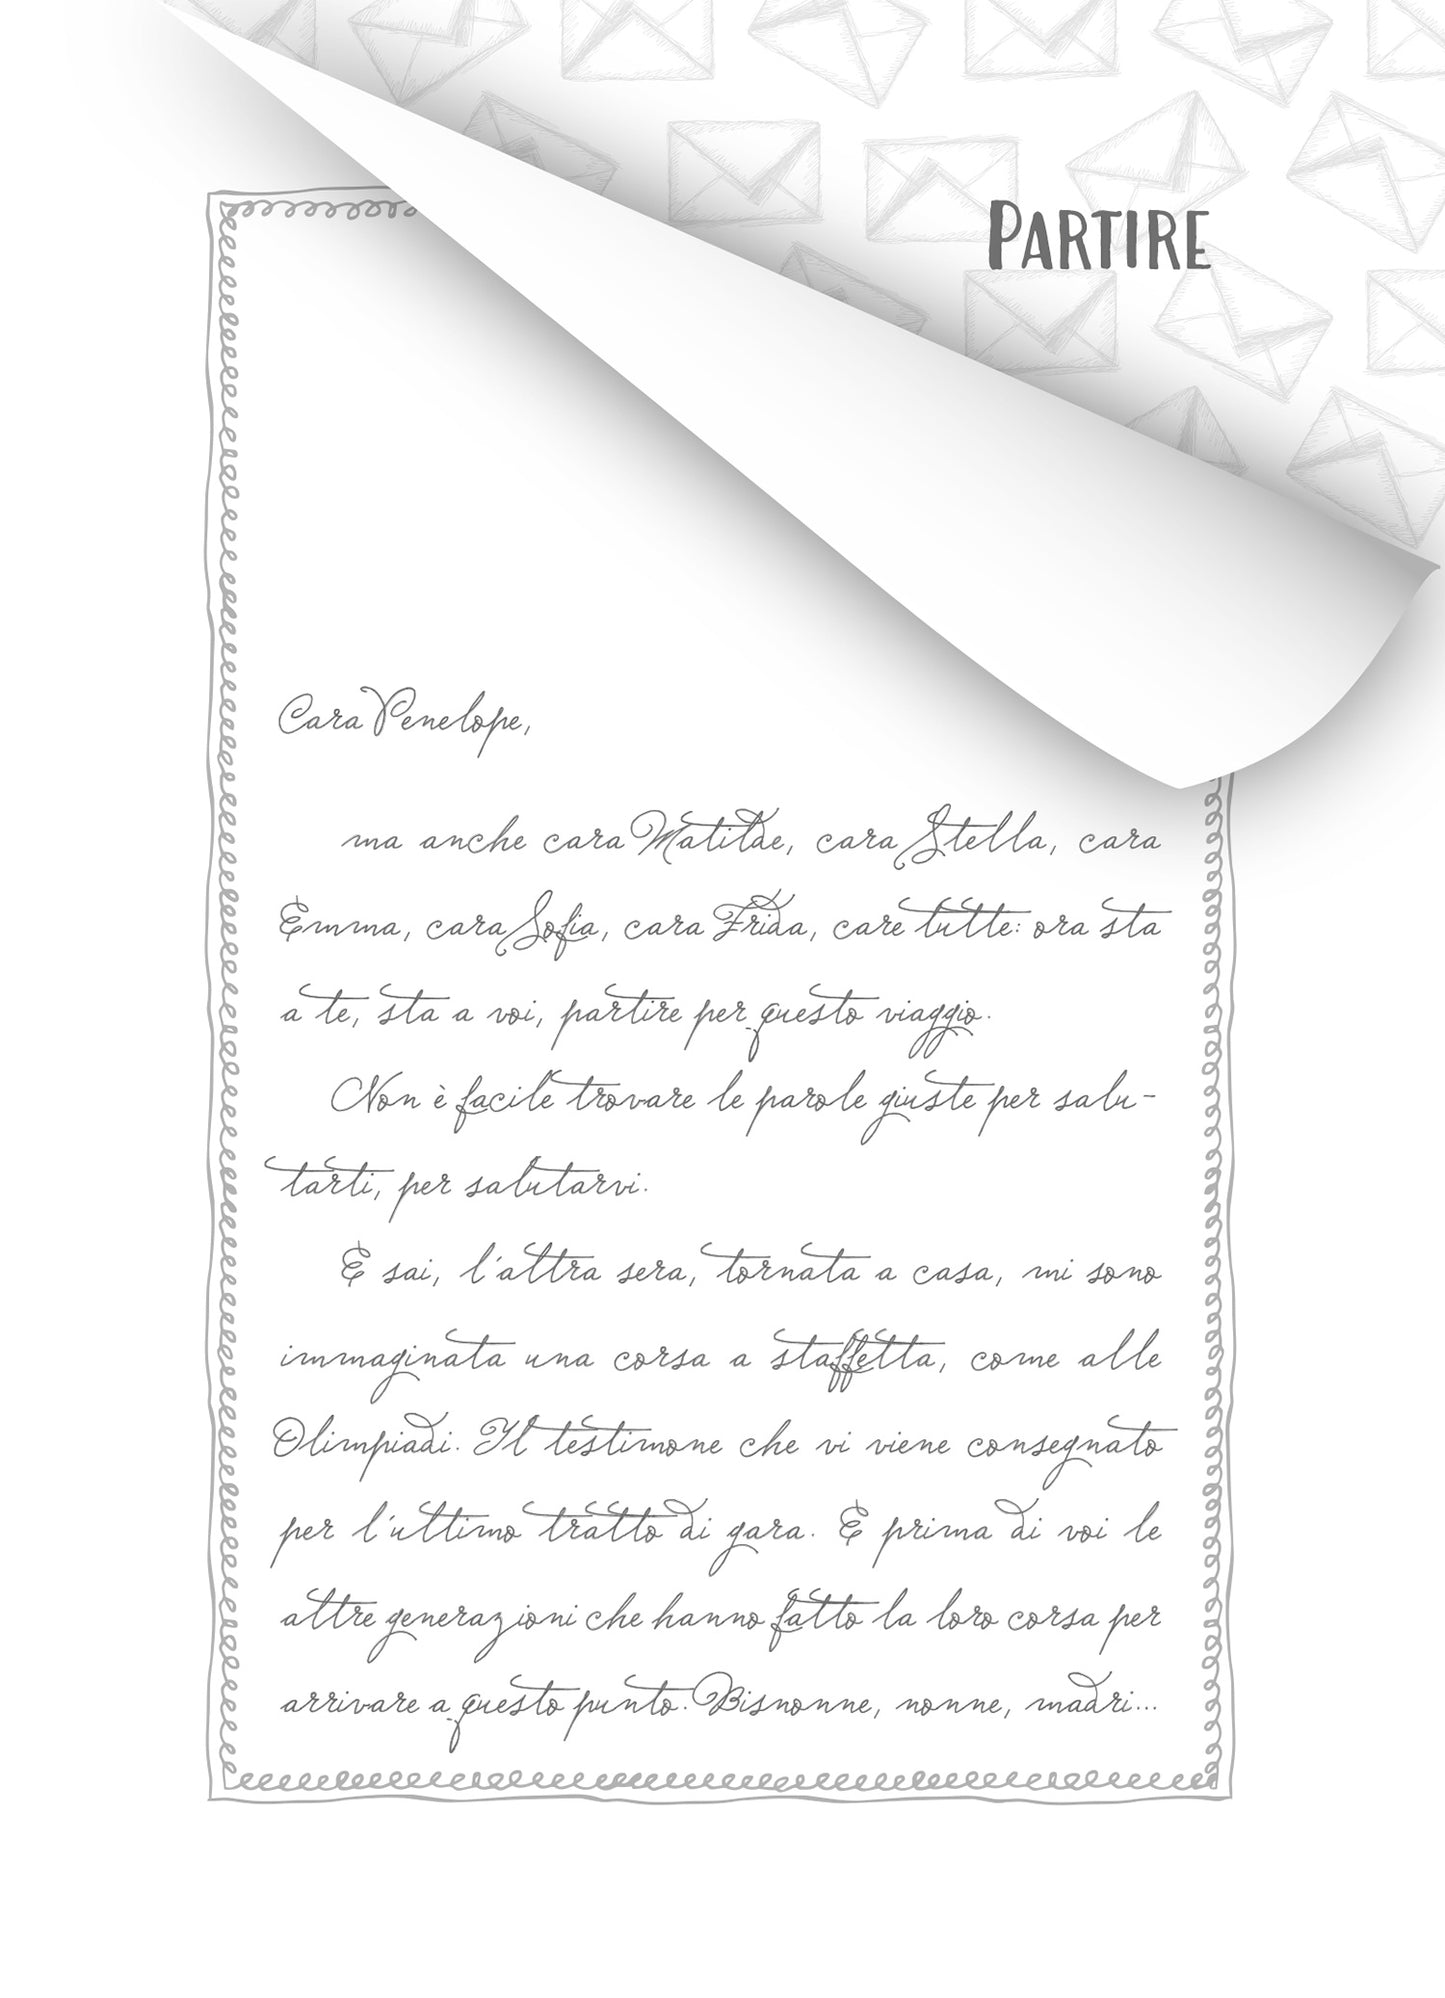 PARTIRE
Cara Penelope,
ma anche cara Matilde, cara Stella, cara
Emma, cara Sofia, cara Frida, care tutte: ora sta
a te, sta a voi, partire per questo viaggio.
Non è facile trovare le parole giuste per salu-
tarti, per salutarvi.
E sai, l'altra sera, tornata a casa, mi sono
immaginata una corsa a staffetta, come alle
Olimpiadi. Il testimone che vi viene consegnato
per l'ultimo tratto di gara. E prima di voi le
altre generazioni che hanno fatto la loro corsa per
arrivare a questo punto. Bisnonne, nonne, madri...